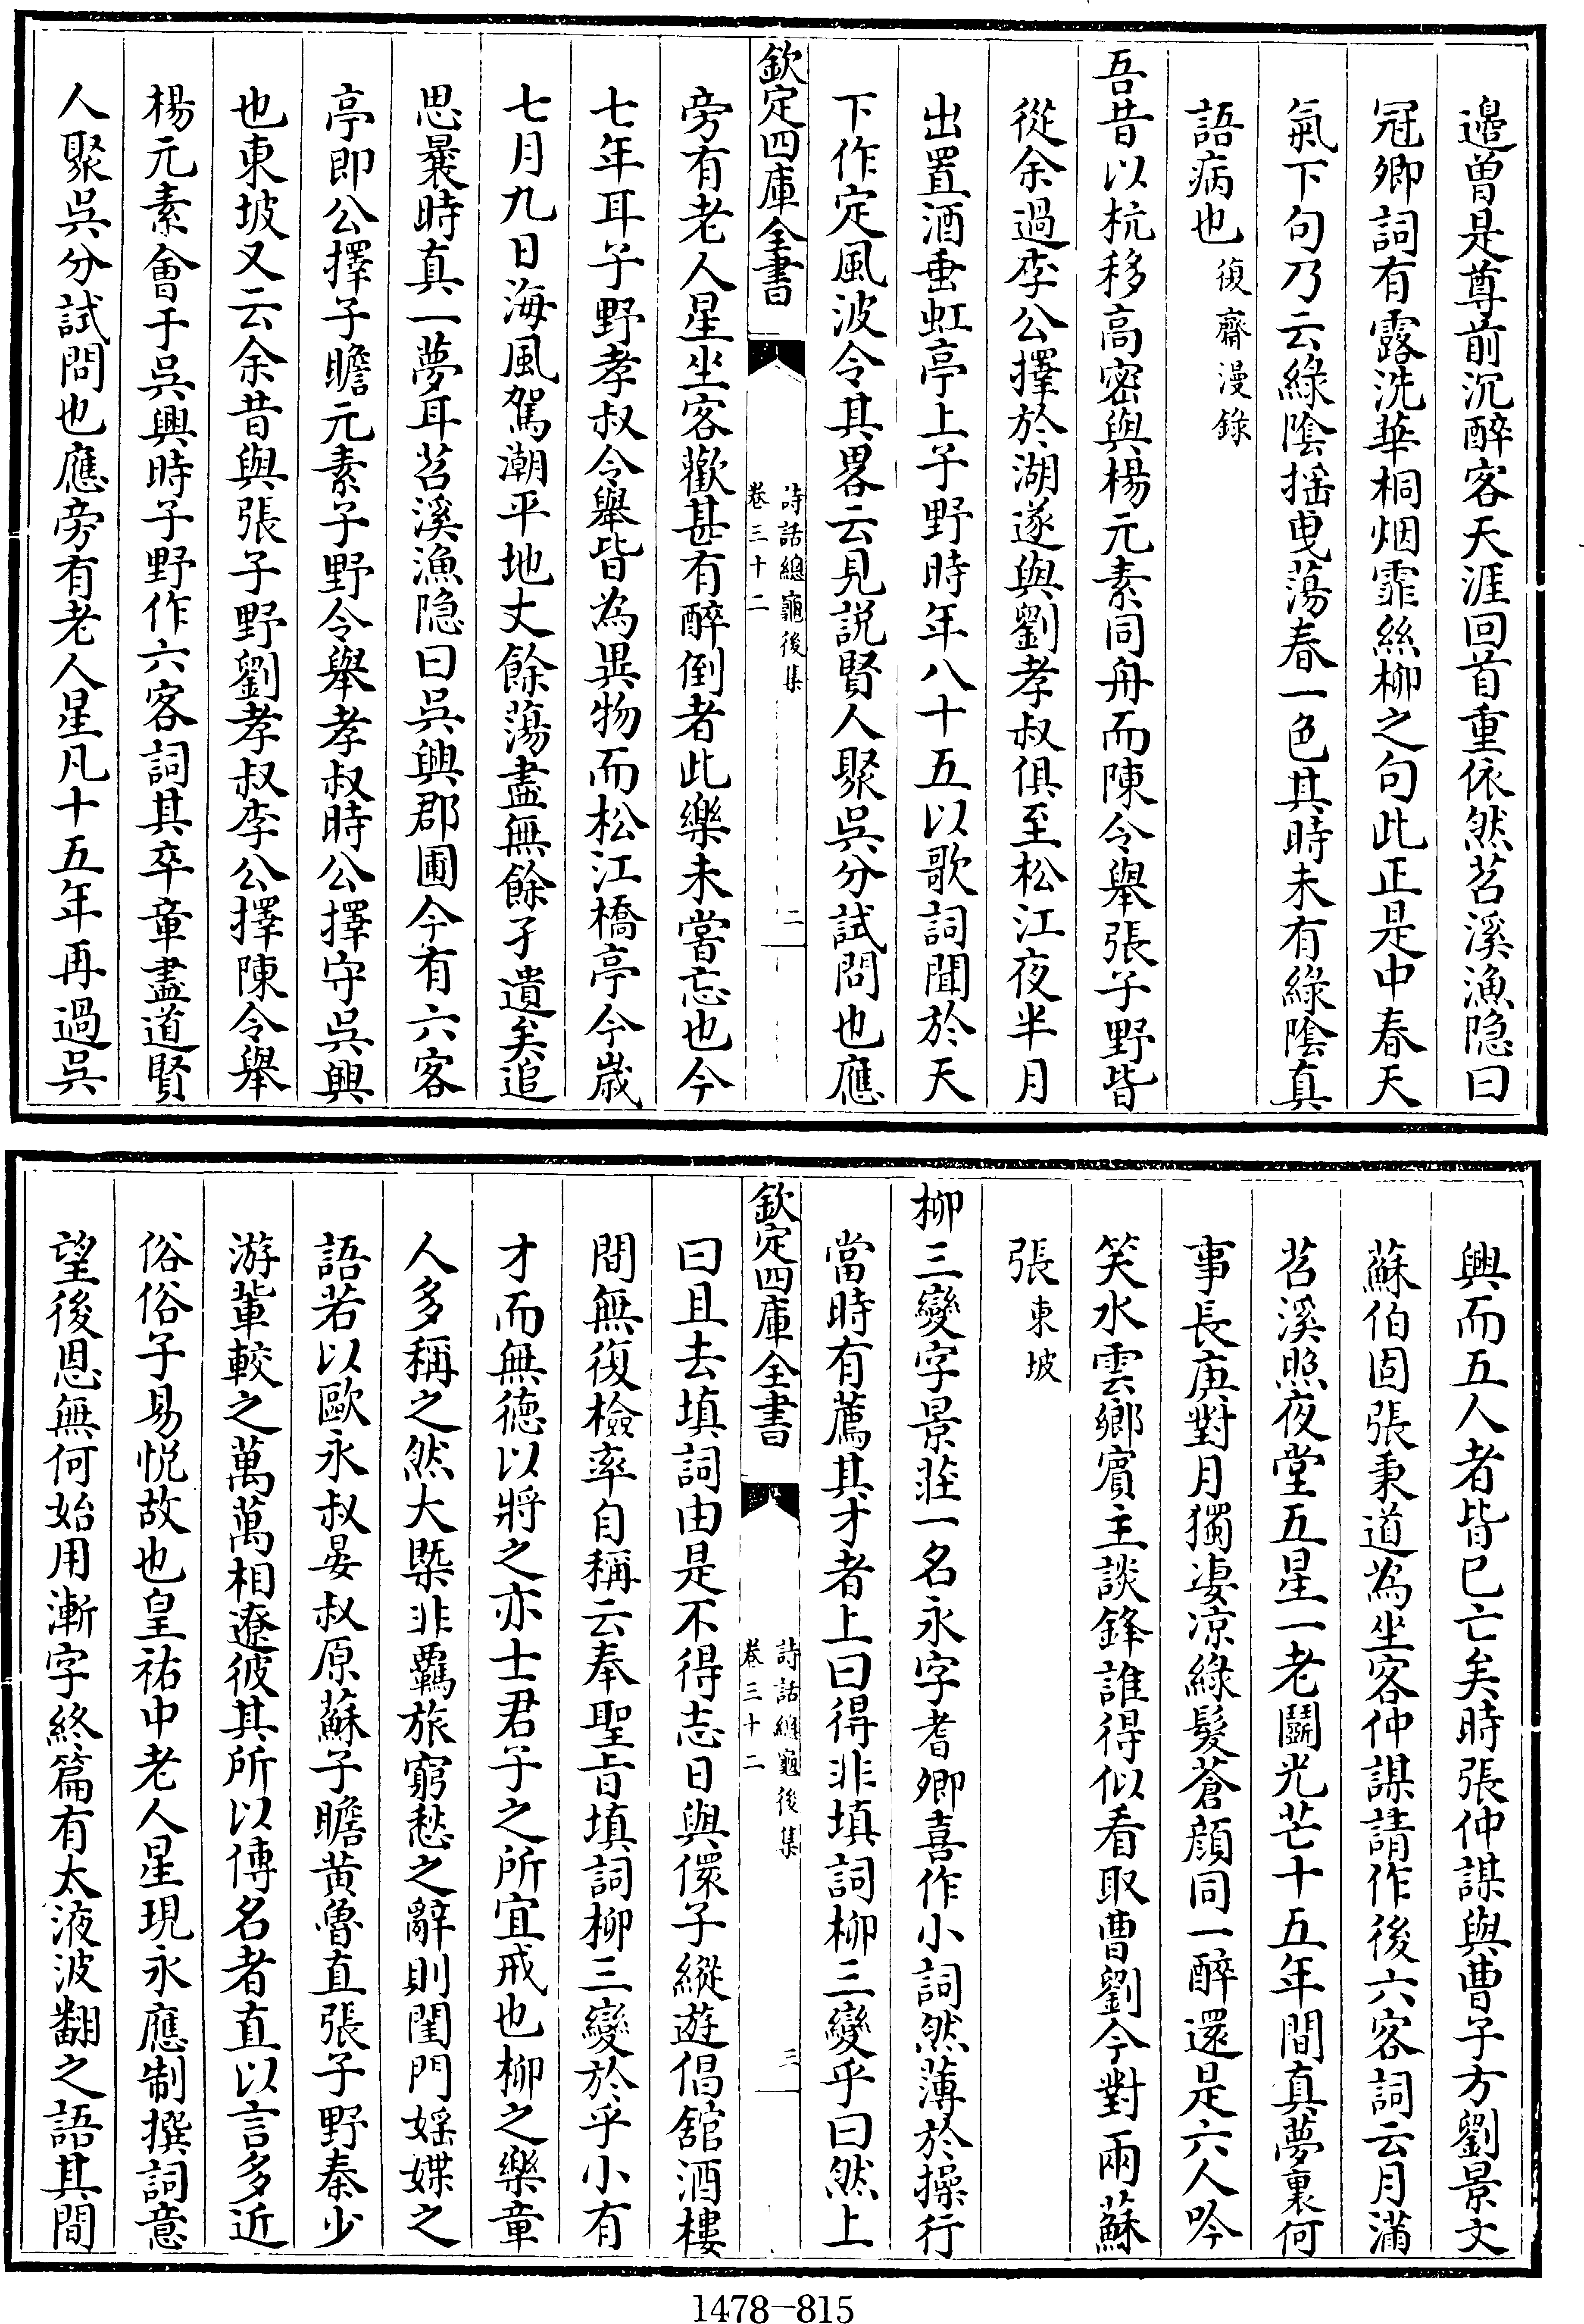 邉曽是尊前沉醉客天涯回首重依然苕溪漁隠曰
冠卿詞有露洗華桐烟霏絲柳之句此正是中春天
氣下句乃云緑隂揺曳蕩春一色其時未有緑隂真
語病也復齋漫錄
吾昔以杭移高宻與楊元素同舟而陳令舉張子野皆
從余過李公擇於湖遂與劉孝叔俱至松江夜半月
出置酒垂虹亭上子野時年八十五以歌詞聞於天
下作定風波令其畧云見説賢人聚吳分試問也應
欽定四庫全書
詩話總龜後集
卷三十二
二
旁有老人星坐客歡甚有醉倒者此樂未嘗忘也今
七年耳子野孝叔令舉皆為異物而松江橋亭今嵗
七月九日海風駕潮平地丈餘蕩盡無餘孑遺矣追
思曩時真一夢耳苕溪漁隠曰吳興郡圃今有六客
亭即公擇子瞻元素子野令舉孝叔時公擇守吳興
也東坡又云余昔與張子野劉孝叔李公擇陳令舉
楊元素會于吳興時子野作六客詞其卒章盡道賢
人聚吳分試問也應旁有老人星凡十五年再過吳
興而五人者皆已亡矣時張仲謀與曹子方劉景文
蘇伯固張秉道為坐客仲謀請作後六客詞云月滿
苕溪照夜堂五星一老鬭光芒十五年間真夢裏何
事長庚對月獨凄凉緑髮蒼顔同一醉還是六人吟
笑水雲鄉賔主談鋒誰得似看取曹劉今對兩蘇
張東坡
柳三變字景莊一名永字耆卿喜作小詞然薄於操行
當時有薦其才者上曰得非填詞柳三變乎曰然上
欽定四庫全書
詩話總龜後集
卷三十二
三
曰且去填詞由是不得志日與儇子縱遊倡館酒樓
間無復檢率自稱云奉聖旨填詞柳三變於乎小有
才而無徳以將之亦士君子之所宜戒也柳之樂章
人多稱之然大槩非羈旅窮愁之辭則閨門媱媟之
語若以歐永叔晏叔原蘇子瞻黄魯直張子野秦少
游輩較之萬萬相遼彼其所以傳名者直以言多近
俗俗子易悦故也皇祐中老人星現永應制撰詞意
望後恩無何始用漸字終篇有太液波翻之語其間
1478—815